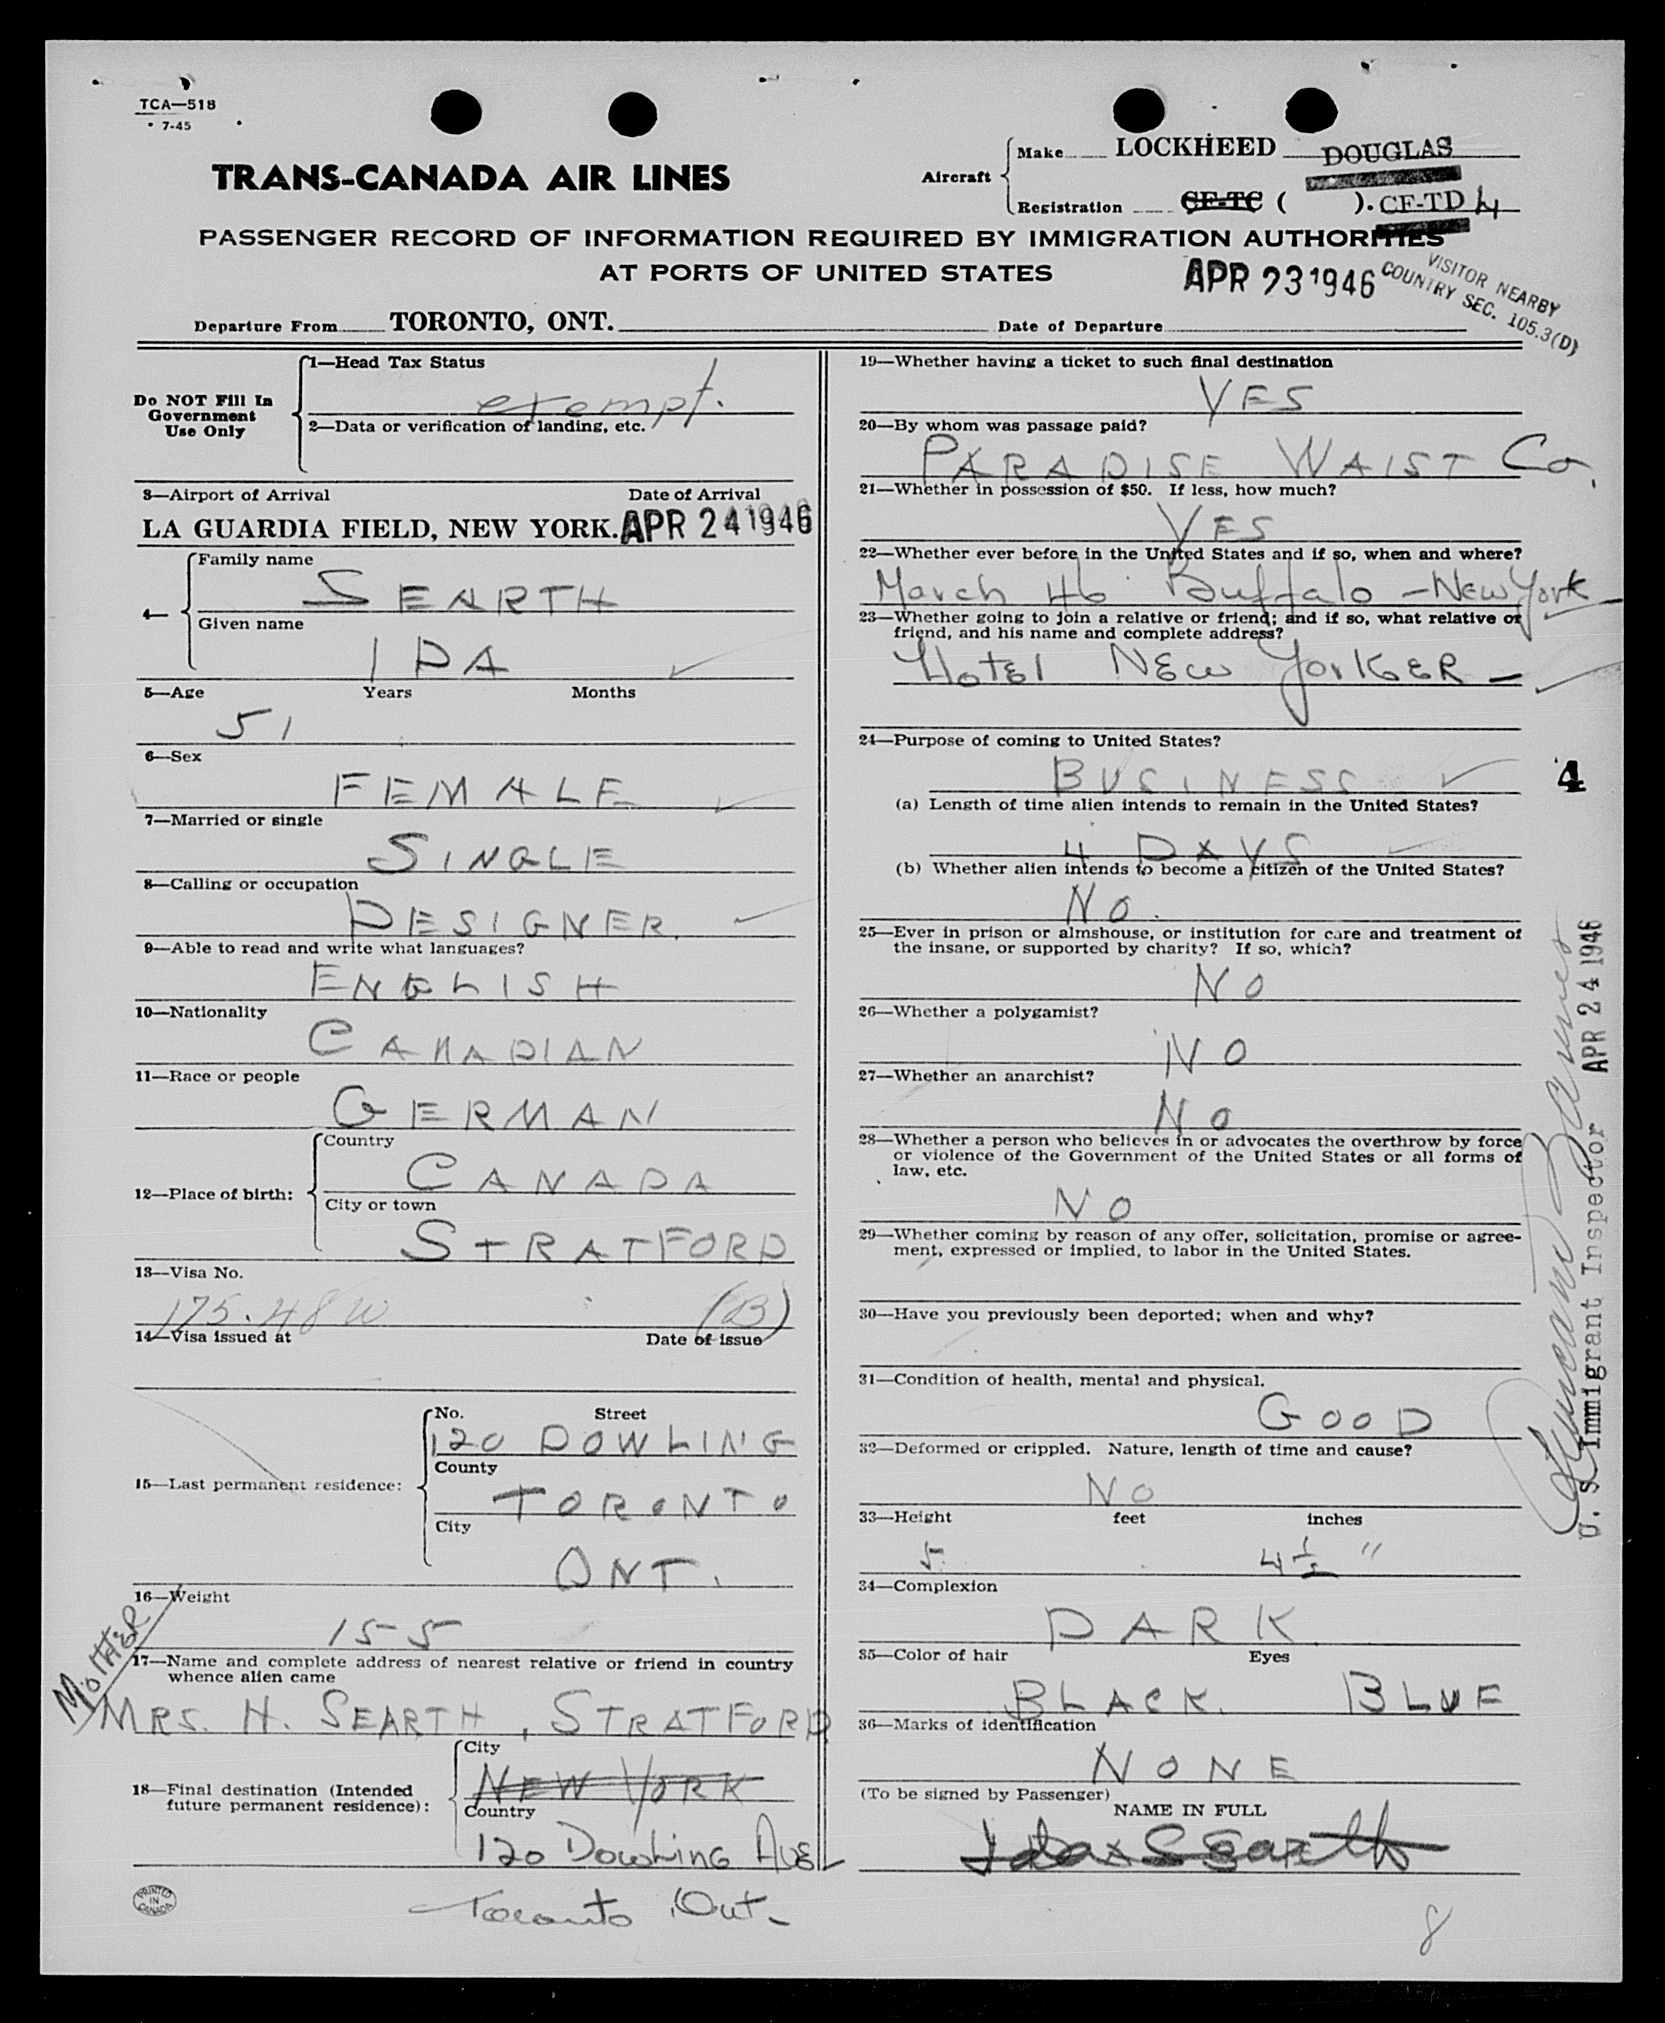 TCA—518
7-45
TRANS-CANADA AIR LINES
Aircraft
Make LOCKHEED DOUGLAS
Registration CF-TC ( ). CF-TD 4
PASSENGER RECORD OF INFORMATION REQUIRED BY IMMIGRATION AUTHORITIES
AT PORTS OF UNITED STATES
APR 23 1946
VISITOR NEARBY
COUNTRY SEC. 105.3(D)
Departure From TORONTO, ONT. Date of Departure
Do NOT Fill In
Government
Use Only
1—Head Tax Status
exempt.
2—Data or verification of landing, etc.
3—Airport of Arrival Date of Arrival
LA GUARDIA FIELD, NEW YORK. APR 24 1946
4—
Family name
SEARTH
Given name
IDA
5—Age Years Months
51
6—Sex
FEMALE
7—Married or single
SINGLE
8—Calling or occupation
DESIGNER.
9—Able to read and write what languages?
ENGLISH
10—Nationality
CANADIAN
11—Race or people
GERMAN
12—Place of birth:
Country
CANADA
City or town
STRATFORD
13—Visa No.
175.48 W (B)
14—Visa issued at Date of issue
15—Last permanent residence:
No. Street
120 DOWLING
County
TORONTO
City
ONT.
16—Weight
155
MOTHER
17—Name and complete address of nearest relative or friend in country
whence alien came
MRS. H. SEARTH, STRATFORD
18—Final destination (Intended
future permanent residence):
City
NEW YORK
Country
120 DOWLING AVE
Toronto Ont.
PRINTED
IN
CANADA
19—Whether having a ticket to such final destination
YES
20—By whom was passage paid?
PARADISE WAIST Co.
21—Whether in possession of $50. If less, how much?
YES
22—Whether ever before in the United States and if so, when and where?
March 46 Buffalo – New York
23—Whether going to join a relative or friend; and if so, what relative or
friend, and his name and complete address?
HOTEL NEW YORKER –
24—Purpose of coming to United States?
BUSINESS
4
(a) Length of time alien intends to remain in the United States?
4 DAYS
(b) Whether alien intends to become a citizen of the United States?
NO.
25—Ever in prison or almshouse, or institution for care and treatment of
the insane, or supported by charity? If so, which?
NO
26—Whether a polygamist?
NO
27—Whether an anarchist?
NO
28—Whether a person who believes in or advocates the overthrow by force
or violence of the Government of the United States or all forms of
law, etc.
NO
29—Whether coming by reason of any offer, solicitation, promise or agree-
ment, expressed or implied, to labor in the United States.
30—Have you previously been deported; when and why?
31—Condition of health, mental and physical.
GOOD
32—Deformed or crippled. Nature, length of time and cause?
NO
33—Height feet inches
5 4½ "
34—Complexion
DARK
35—Color of hair Eyes
BLACK. BLUE
36—Marks of identification
NONE
(To be signed by Passenger)
NAME IN FULL
Ida Searth
8
U. S. Immigrant Inspector APR 24 1946